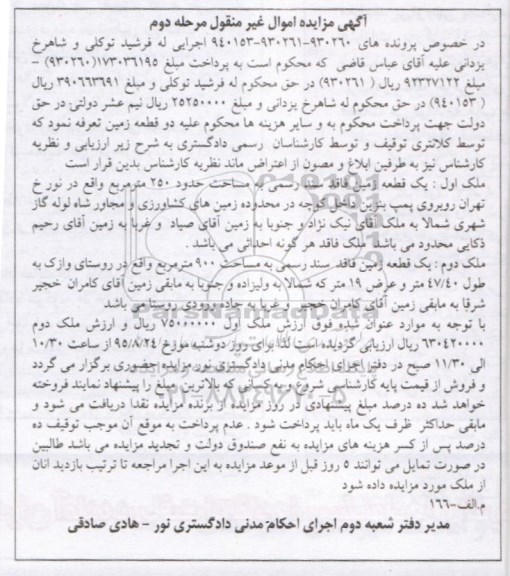 آگهی مزایده اموال غیر منقول مرحله دوم
در خصوص پرونده های ۹۳۰۲۶۰-۹۳۰۲۶۱-۹۴۰۱۵۳ اجرایی له فرشید توکلی و شاهرخ
یزدانی علیه آقای عباس قاضی که محکوم است به پرداخت مبلغ ۱۷۳۰۳۶۱۹۵(۹۳۰۲۶۰) -
مبلغ ۹۲۳۲۷۱۲۲ ریال ( ۹۳۰۲۶۱) در حق محکوم له فرشید توکلی و مبلغ ۳۹۰۶۶۳۶۹۱
( ۹۴۰۱۵۳) در حق محکوم له شاهرخ یزدانی و مبلغ ۲۵۲۵۰۰۰۰ ریال نیم عشر دولتی در حق
دولت جهت پرداخت محکوم به و سایر هزینه ها محکوم علیه دو قطعه زمین تعرفه نمود که
توسط کلانتری توقیف و توسط کارشناسان رسمی دادگستری به شرح زیر ارزیابی و نظریه
کارشناس نیز به طرفین ابلاغ و مصون از اعتراض ماند نظریه کارشناس بدین قرار است
ملک اول : یک قطعه زمین فاقد سند رسمی به مساحت حدود ۲۵۰ مترمربع واقع در نور خ
تهران روبروی پمپ بنزین داخل کوچه در محدوده زمین های کشاورزی و مجاور شاه لوله گاز
شهری شمالا به ملک آقای نیک نژاد و جنوبا به زمین آقای صیاد و غربا به زمین آقای رحیم
ذکایی محدود می باشد ملک فاقد هر گونه احداثی می باشد .
ملک دوم : یک قطعه زمین فاقد سند رسمی به مساحت ۹۰۰ مترمربع واقع در روستای وازک به
طول ۴۷/۴۰ متر و عرض ۱۹ متر که شمالا به ولیزاده و جنوبا به مابقی زمین آقای کامران خجیر
شرقا به مابقی زمین آقای کامران خجیر و غربا به جاده ورودی روستا می باشد
با توجه به موارد عنوان شده فوق ارزش ملک اول ۷۵۰۰۰۰۰۰ ریال و ارزش ملک دوم
۶۳۰۴۲۰۰۰۰ ریال ارزیابی گردیده است لذا برای روز دوشنبه مورخ ۹۵/۸/۲۴ از ساعت ۱۰/۳۰
الی ۱۱/۳۰ صبح در دفتر اجرای احکام مدنی دادگستری نور مزایده حضوری برگزار می گردد
و فروش از قیمت پایه کارشناسی شروع و به کسانی که بالاترین مبلغ را پیشنهاد نمایند فروخته
خواهد شد ده درصد مبلغ پیشنهادی در روز مزایده از برنده مزایده نقدا دریافت می شود و
مابقی حداکثر ظرف یک ماه باید پرداخت شود . عدم پرداخت به موقع آن موجب توقیف ده
درصد پس از کسر هزینه های مزایده به نفع صندوق دولت و تجدید مزایده می باشد طالبین
در صورت تمایل می توانند ۵ روز قبل از موعد مزایده به این اجرا مراجعه تا ترتیب بازدید آنان
از ملک مورد مزایده داده شود
م.الف-۱۶۶
مدیر دفتر شعبه دوم اجرای احکام مدنی دادگستری نور - هادی صادقی
ParsNamadData
۰۲۱-۸۸۳۴۹۶۷۰-۵